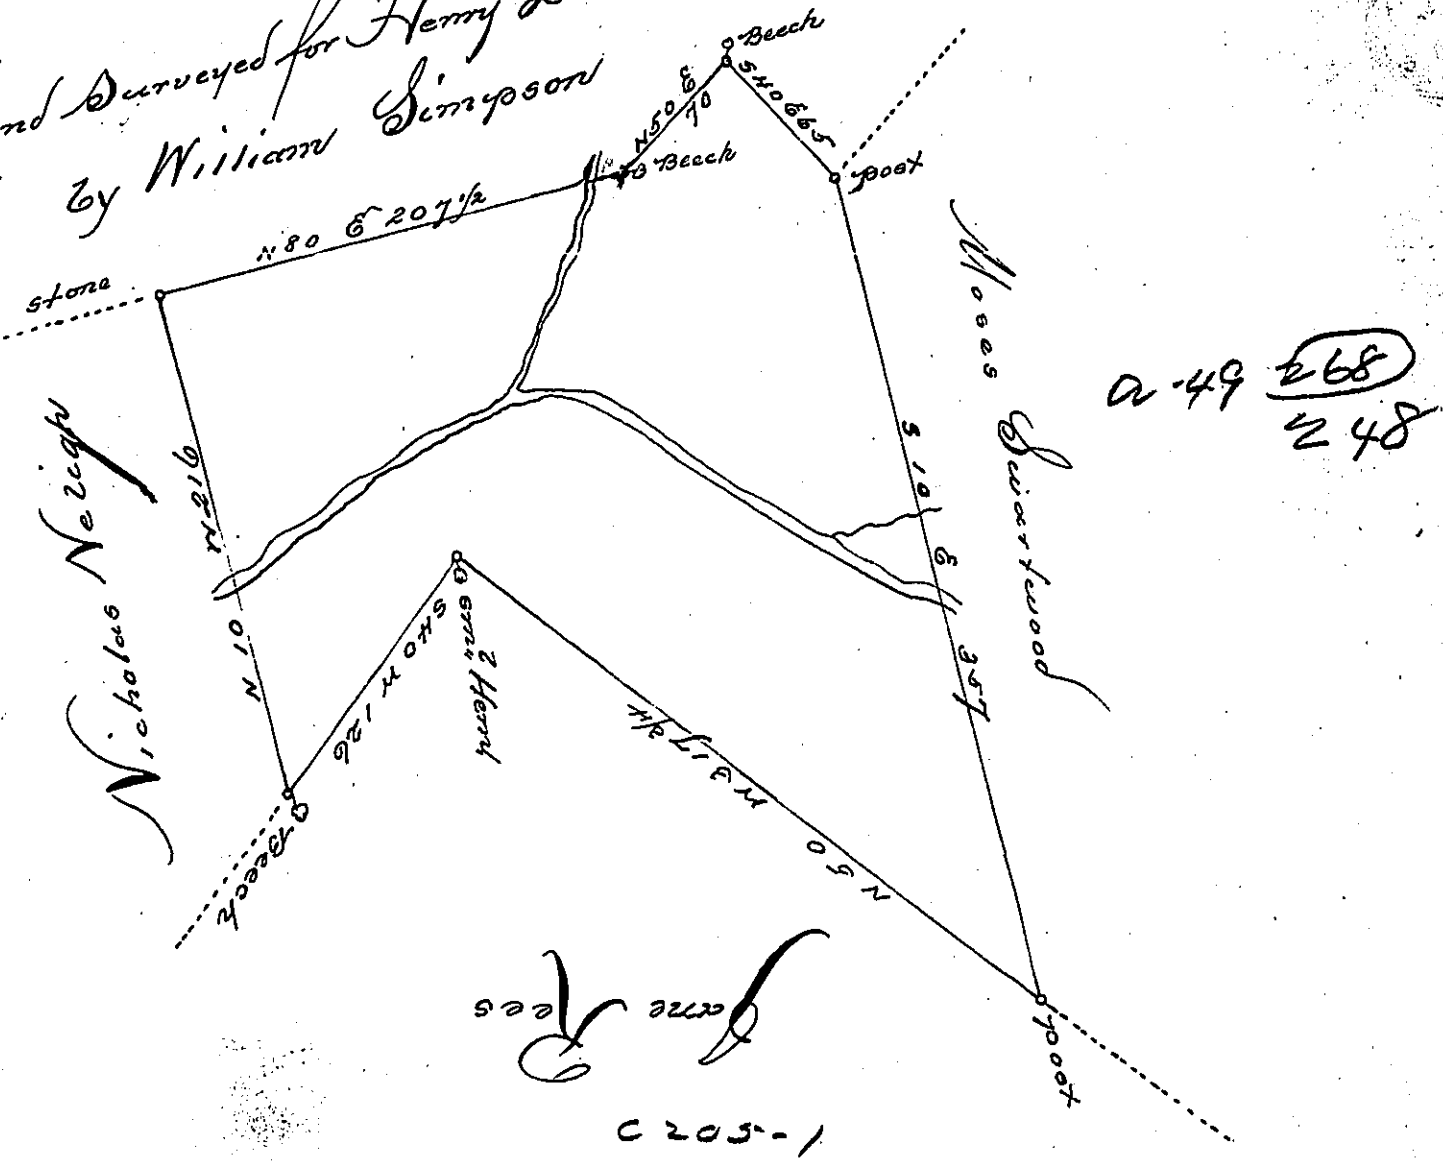 nd Surveyed for Henry
by William Simpson
Beech
N 50 E 70
S 40 E 65
Beech
post
N 80 E 207 1/2
stone
Moses Swartwood
a-49 268
248
N 10 W 216
Nicholas Neligh
S 10 E 357
S 40 W 126
Beech
N 50 W 317 3/4
post
Jane Rees
C 205-1